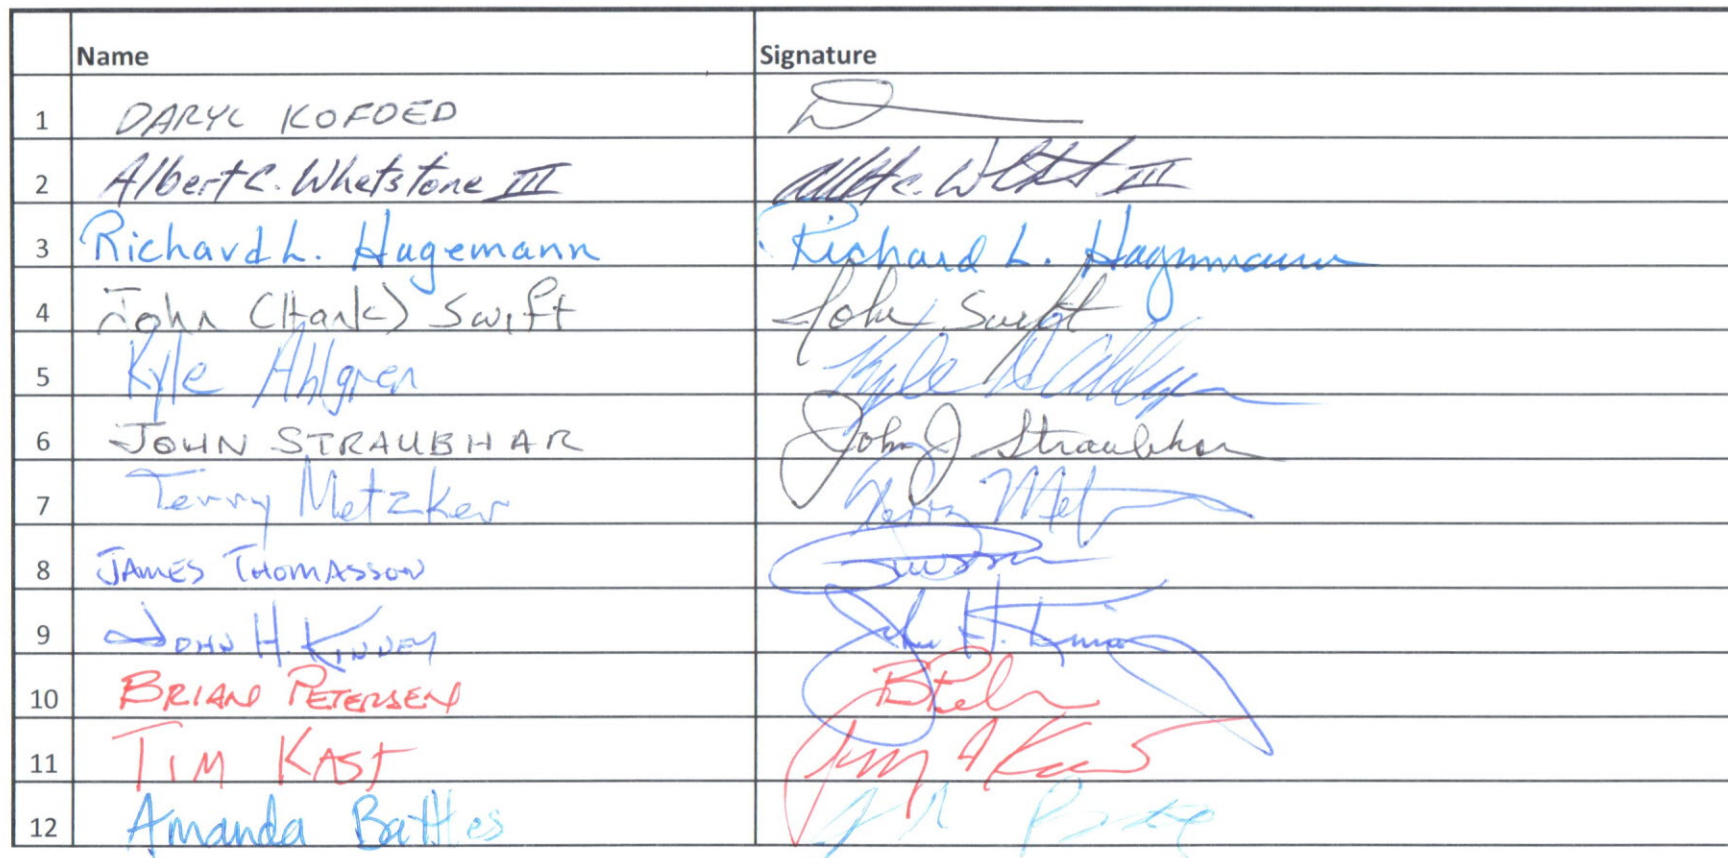 Name Signature
1 DARYL KOFOED
2 Albert C. Whetstone III Albert C. Whetstone III
3 Richard L. Hagemann Richard L. Hagemann
4 John (Hank) Swift John Swift
5 Kyle Ahlgren Kyle Ahlgren
6 JOHN STRAUBHAR John J Straubhar
7 Terry Metzker Terry Met
8 JAMES THOMASSON
9 JOHN H. KINNEY John H. Kinney
10 BRIAN PETERSEN
11 TIM KAST
12 Amanda Battles